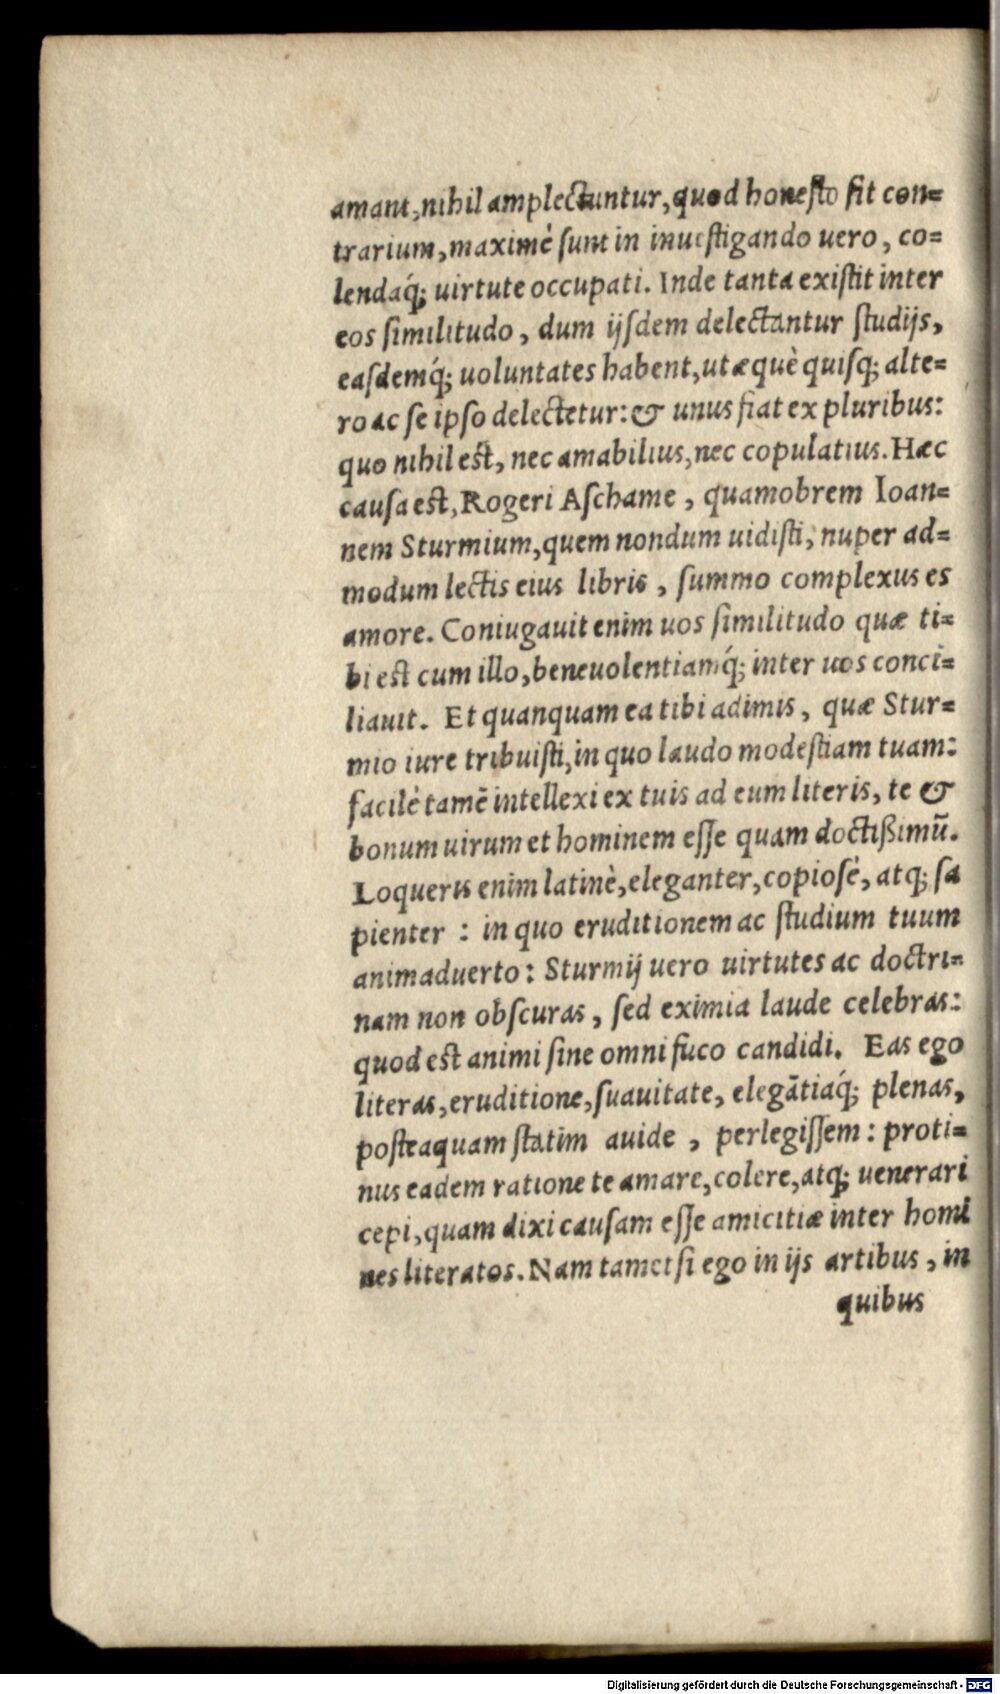 amant, nihil amplectuntur, quod honesto sit con=
trarium, maximè sunt in inuestigando uero, co=
lendaq́; uirtute occupati. Inde tanta existit inter
eos similitudo, dum ijsdem delectantur studijs,
easdemq́; uoluntates habent, ut æquè quisq; alte=
ro ac se ipso delectetur: & unus fiat ex pluribus:
quo nihil est, nec amabilius, nec copulatius. Hæc
causa est, Rogeri Aschame, quamobrem Ioan=
nem Sturmium, quem nondum uidisti, nuper ad=
modum lectis eius libris, summo complexus es
amore. Coniugauit enim uos similitudo quæ ti=
bi est cum illo, beneuolentiamq́; inter uos conci=
liauit. Et quanquam ea tibi adimis, quæ Stur=
mio iure tribuisti, in quo laudo modestiam tuam:
facilè tamē intellexi ex tuis ad eum literis, te &
bonum uirum et hominem esse quam doctißimū.
Loqueris enim latinè, eleganter, copiosè, atq; sa
pienter: in quo eruditionem ac studium tuum
animaduerto: Sturmij uero uirtutes ac doctri=
nam non obscuras, sed eximia laude celebras:
quod est animi sine omni fuco candidi. Eas ego
literas, eruditione, suauitate, elegātiaq́; plenas,
posteaquam statim auide, perlegissem: proti=
nus eadem ratione te amare, colere, atq; uenerari
cepi, quam dixi causam esse amicitiæ inter homi
nes literatos. Nam tametsi ego in ijs artibus, in
quibus
Digitalisierung gefördert durch die Deutsche Forschungsgemeinschaft - DFG